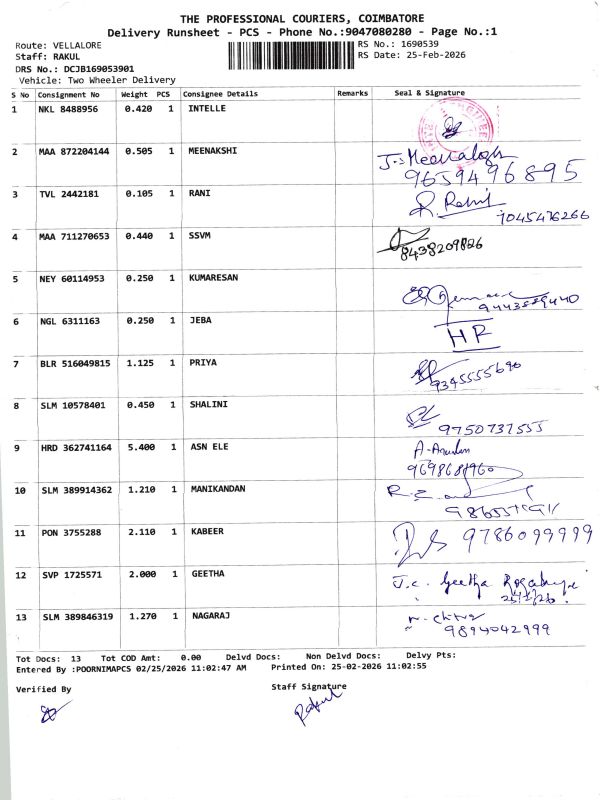 THE PROFESSIONAL COURIERS, COIMBATORE
Delivery Runsheet - PCS - Phone No.:9047080280 - Page No.:1
Route: VELLALORE
RS No.: 1690539
Staff: RAKUL
RS Date: 25-Feb-2026
DRS No.: DCJB169053901
Vehicle: Two Wheeler Delivery
S No Consignment No Weight PCS Consignee Details Remarks Seal & Signature
1 NKL 8488956 0.420 1 INTELLE
2 MAA 872204144 0.505 1 MEENAKSHI J.S Meenalogh
9659496895
3 TVL 2442181 0.105 1 RANI
7045476266
4 MAA 711270653 0.440 1 SSVM
8438209826
5 NEY 60114953 0.250 1 KUMARESAN
6 NGL 6311163 0.250 1 JEBA HR
7 BLR 516049815 1.125 1 PRIYA
9345555690
8 SLM 10578401 0.450 1 SHALINI
9750737555
9 HRD 362741164 5.400 1 ASN ELE
10 SLM 389914362 1.210 1 MANIKANDAN
11 PON 3755288 2.110 1 KABEER 9786099999
12 SVP 1725571 2.000 1 GEETHA J.C. Geetha
13 SLM 389846319 1.270 1 NAGARAJ
9894042999
Tot Docs: 13 Tot COD Amt: 0.00 Delvd Docs: Non Delvd Docs: Delvy Pts:
Entered By :POORNIMAPCS 02/25/2026 11:02:47 AM Printed On: 25-02-2026 11:02:55
Verified By Staff Signature
Rakul